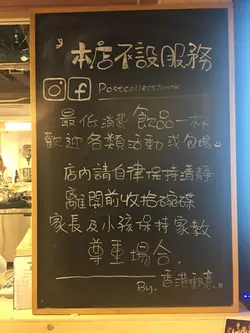 本店不設服務
f Postcollection
最低消費飲品一杯
歡迎各類活動或包場
店內請自律保持清靜
離開前收拾碗碟
家長及小孩保持家教
尊重場合.
By. 香港